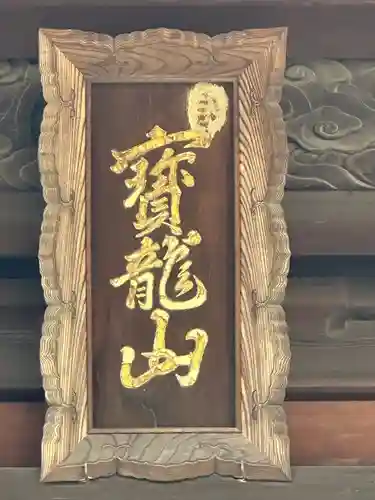 寶龍山